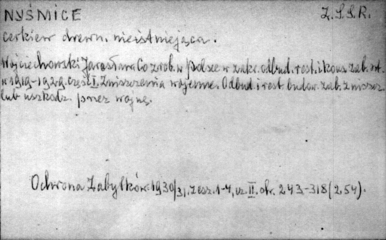 NYŚNICE Z.S.S.R.
cerkiew drewn. nieistniejąca.
Wojciechowski Jarosław Co zrob. w Polsce w zakr. odbud. rest. i kons. zab. szt.
w 1919-1929 Część I. Zniszczenia wojenne. Odbud. i rest. budow. zab. zniszcz.
lub uszkodz. przez wojnę.
Ochrona Zabytków. 1930/31. zesz. 1-4, cz. II. str. 243-318 (254).